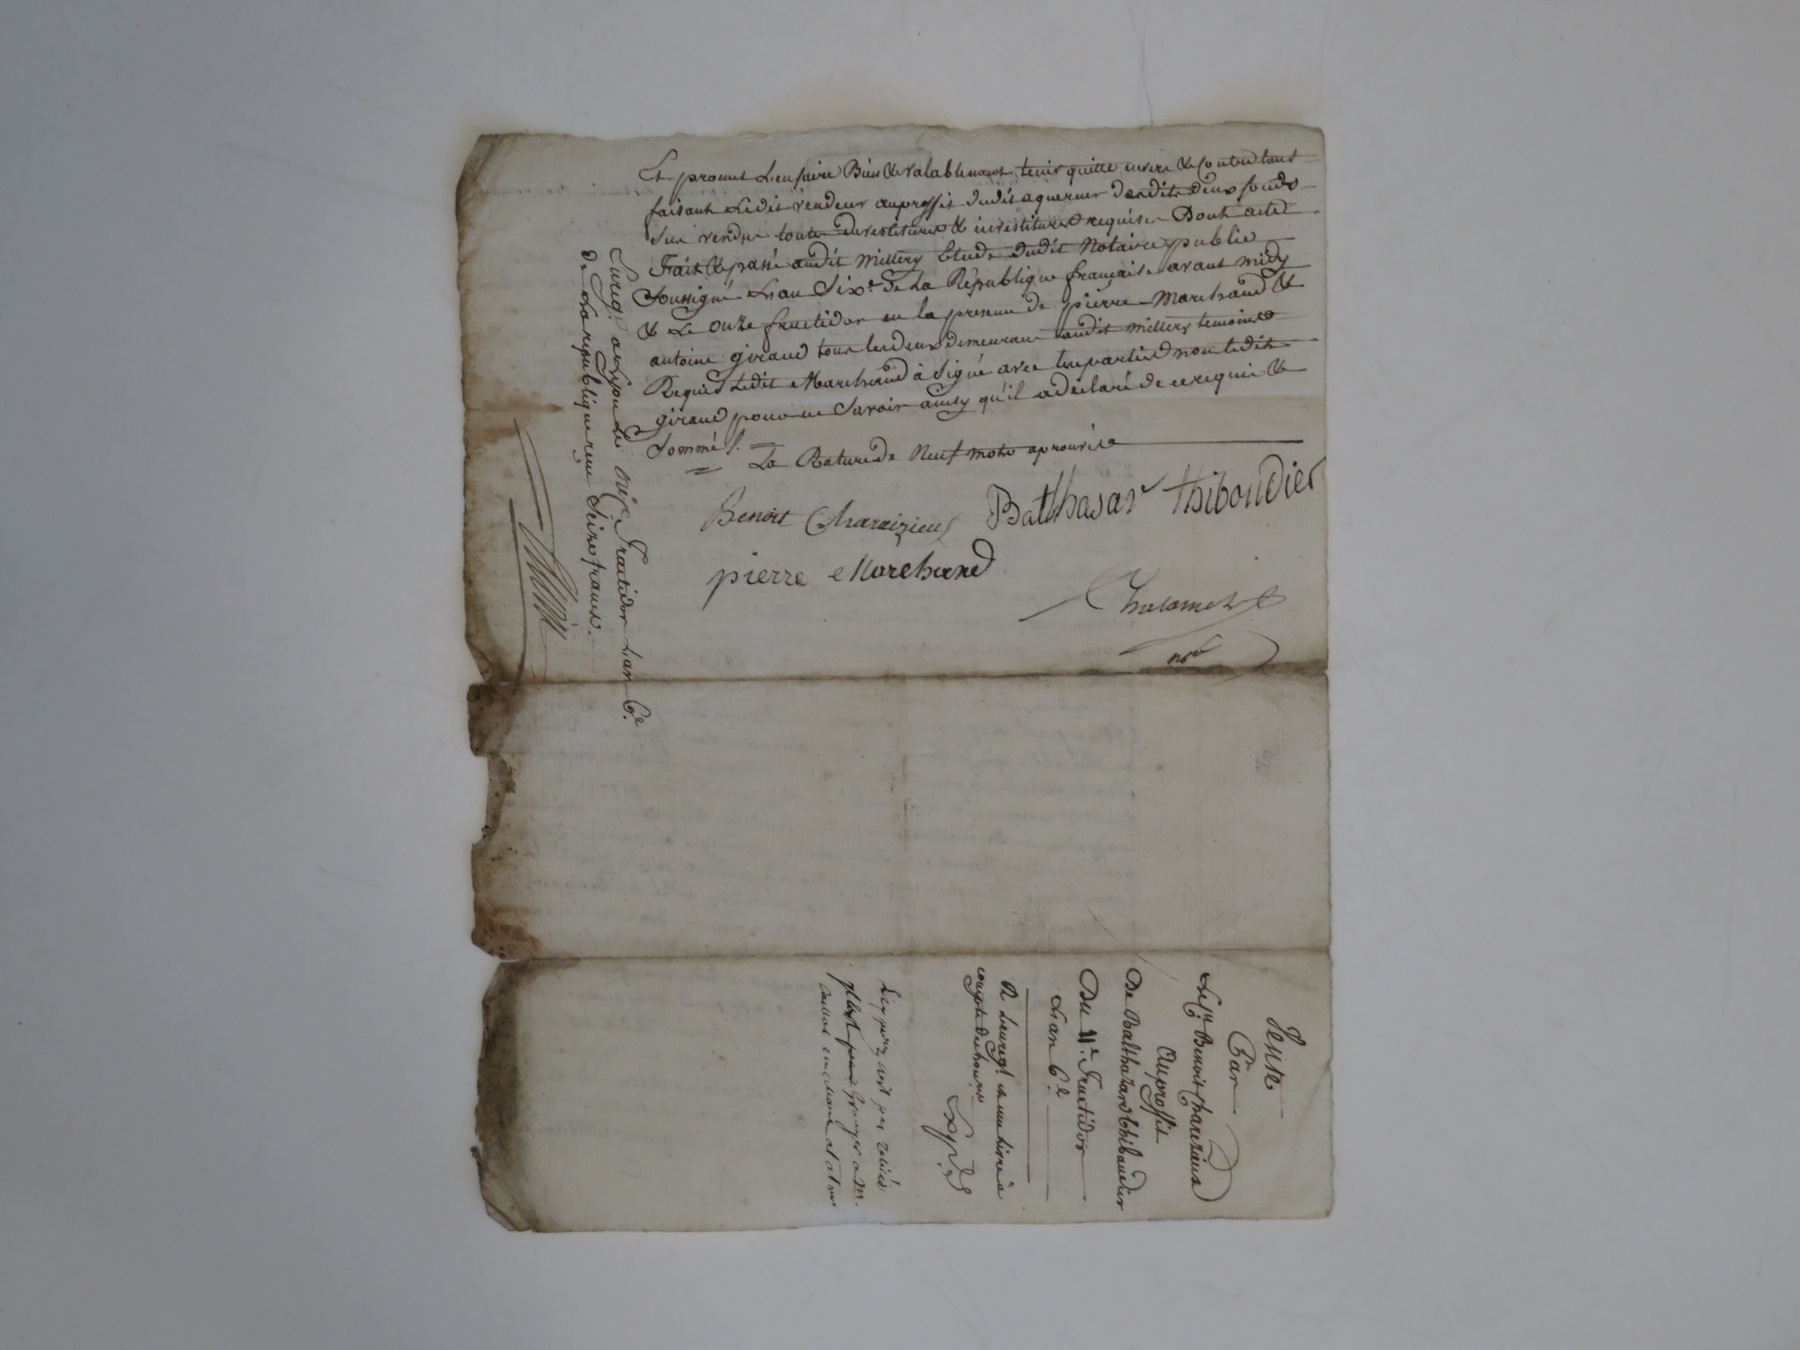 Et promet L'en faire Bien & valablement tenir quitte envers & Contre tous
faisant Ledit vendeur auproffit dudit aquereur desdits deux fonds
sus vendus toutes devestitures & investitures requises Dont acte
Fait & passé audit millery Etude dudit Notaire public
Soussigné L'an Six.e De La République française avant midy
& Le onze fructidor en la presence de pierre Marchand &
antoine giraud tous les deux demeurant audit millery temoins
Requis Ledit Marchand à signé avec les parties non ledit
giraud pour ne Savoir ainsy qu'il a déclaré de ce requis &
Sommé /.
La Rature de Neuf mots aprouvée
Benoit Charezieux Balthasar thiboudier
pierre Marchand
Chalamel
nore
Enreg.é a Lyon le fructidor L'an 6.e
de La republique reçu Seize francs.
Vente
Par
Le c.en Benoit Charezieux
Auproffit
De Balthazard thibaudier
Du 11.e Fructidor
L'an 6.e